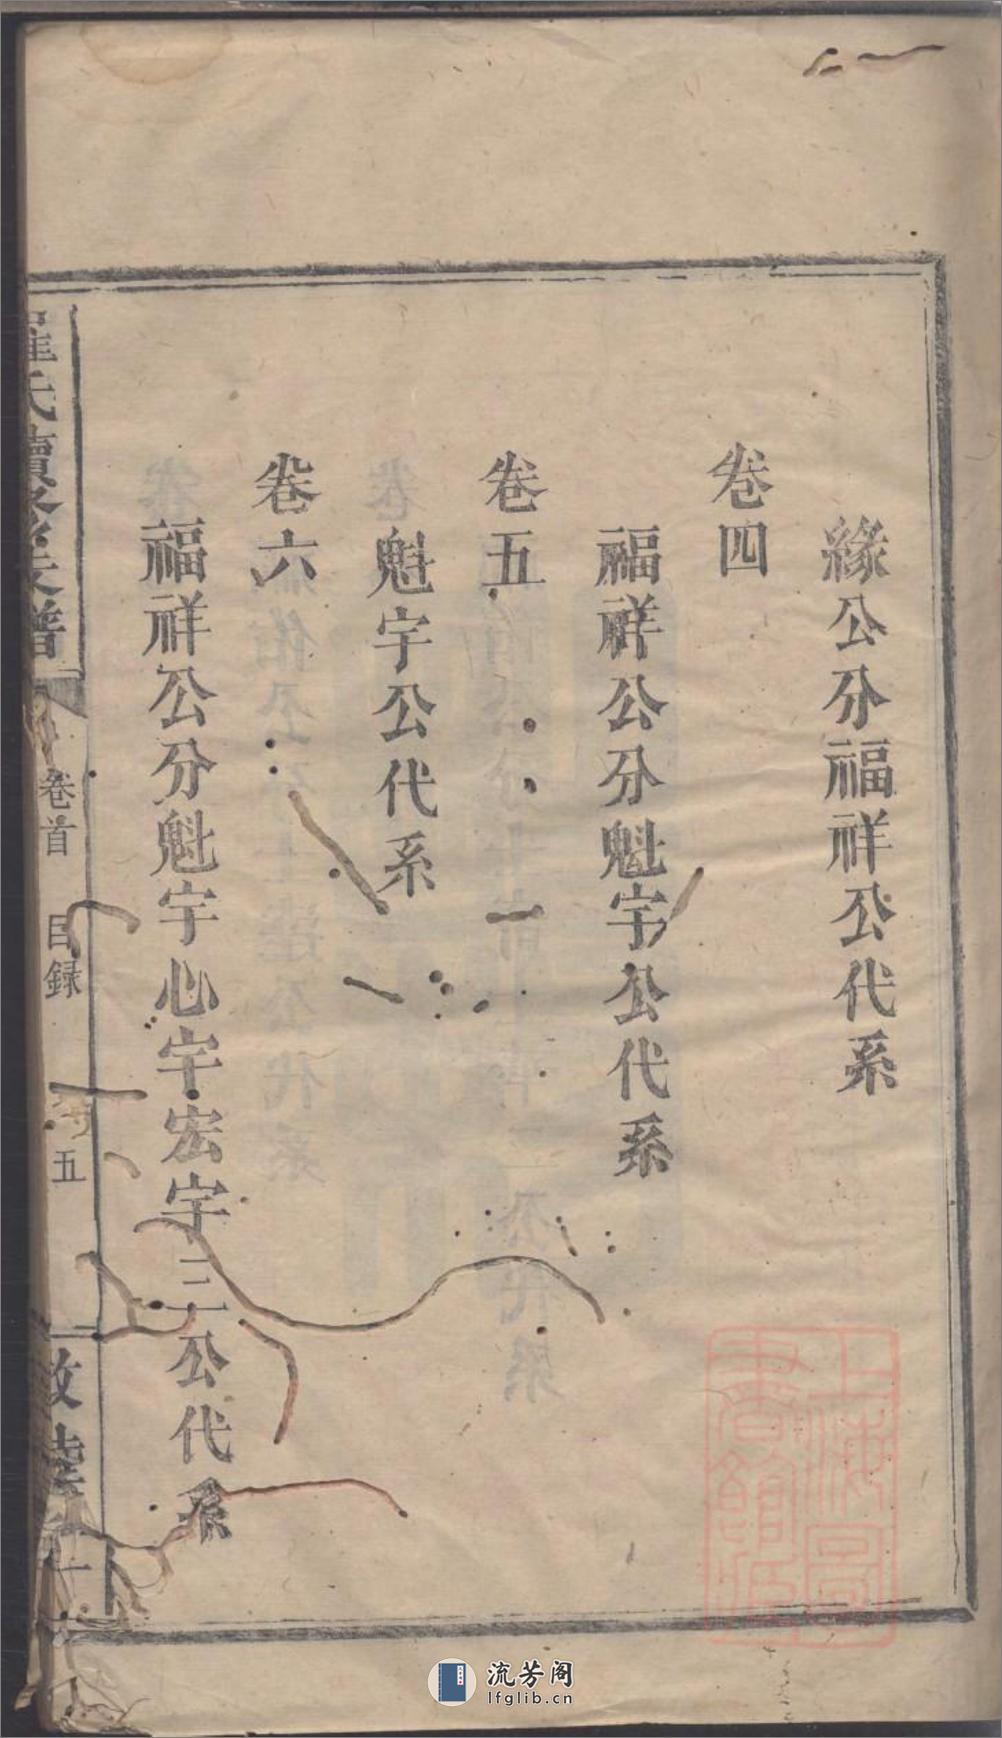 緣公分福祥公代系
卷四
福祥公分魁宇公代系
卷五
魁宇公代系
卷六
福祥公分魁宇心宇宏宇三公代系
羅氏續修支譜
卷首
目録
五
敦睦
上海圖書館藏
流芳阁
lfglib.cn